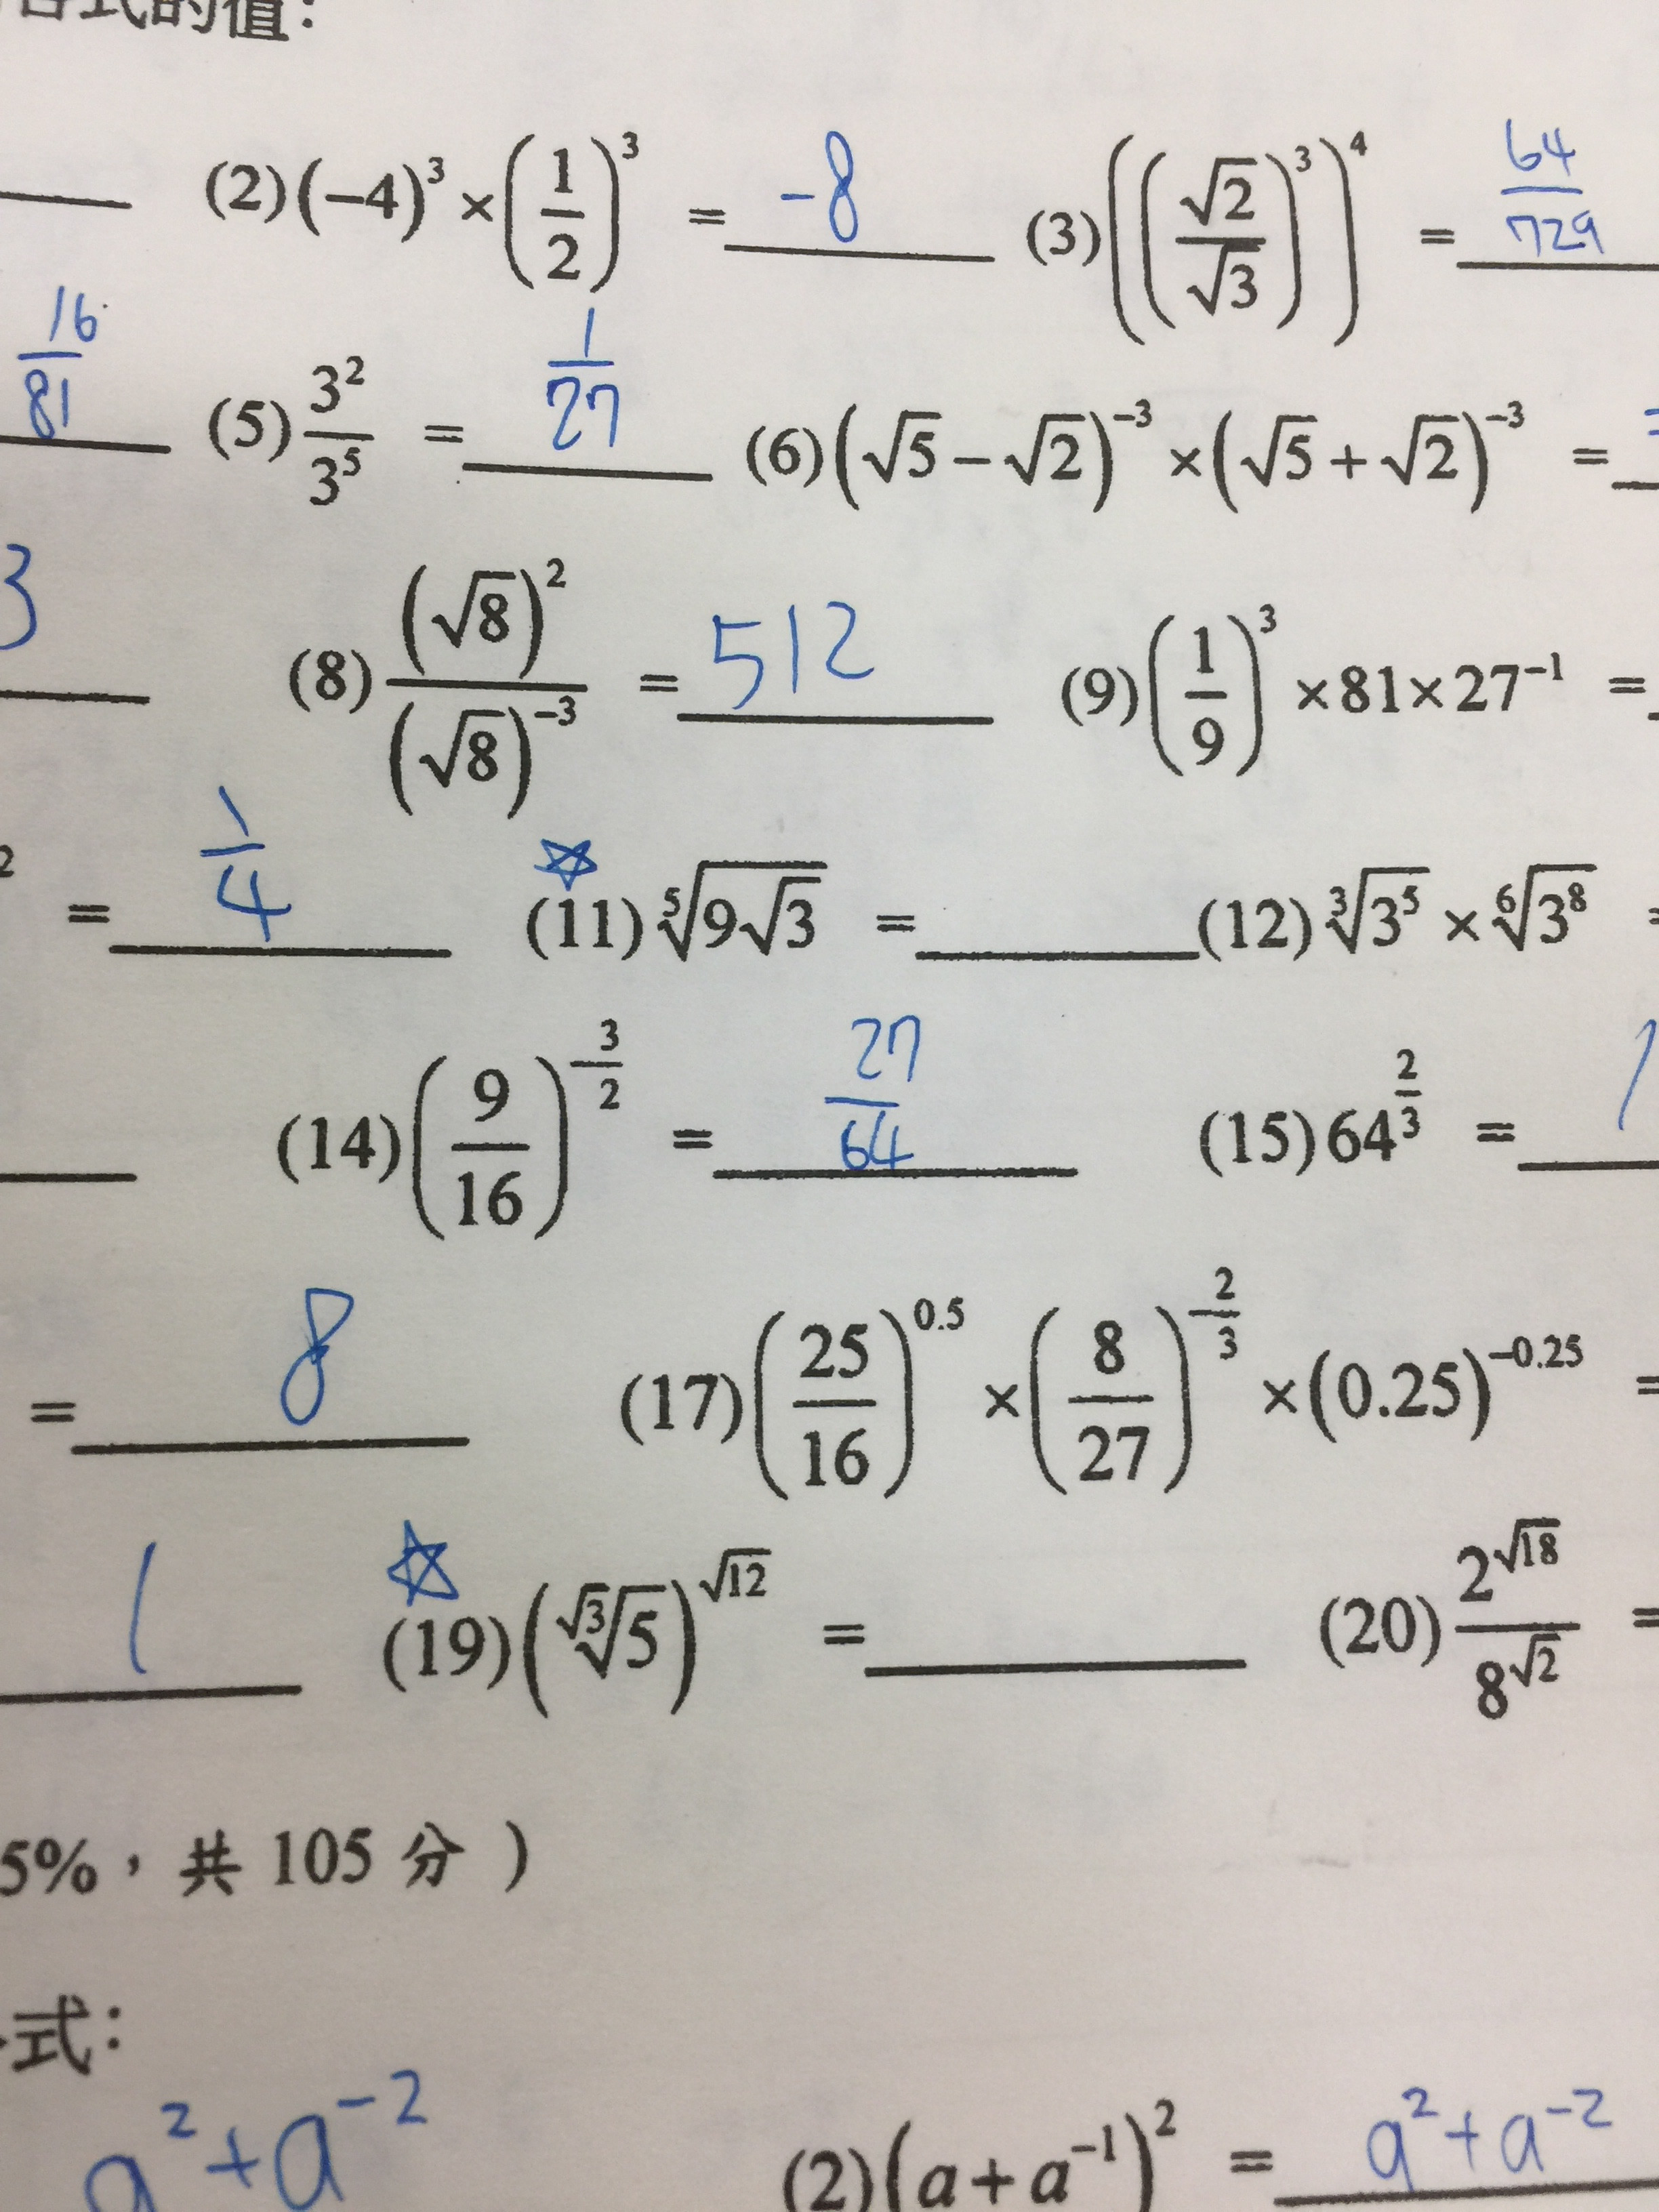 各式的值：
(2) (−4)³ × (1/2)³ = -8 (3) ((√2/√3)³)⁴ = 64/729
16/81 (5) 3²/3⁵ = 1/27 (6) (√5 − √2)⁻³ × (√5 + √2)⁻³ =
3 (8) (√8)²/(√8)⁻³ = 512 (9) (1/9)³ × 81 × 27⁻¹ =
2 = 1/4 ☆ (11) ⁵√(9√3) = (12) ³√(3⁵) × ⁶√(3⁸) =
(14) (9/16)^(−3/2) = 27/64 (15) 64^(2/3) = 1
= 8 (17) (25/16)^0.5 × (8/27)^(−2/3) × (0.25)^(−0.25) =
1 ☆ (19) (^(√3)√5)^(√12) = (20) 2^(√18)/8^(√2) =
5%，共 105 分）
式：
a²+a⁻² (2) (a+a⁻¹)² = a²+a⁻²